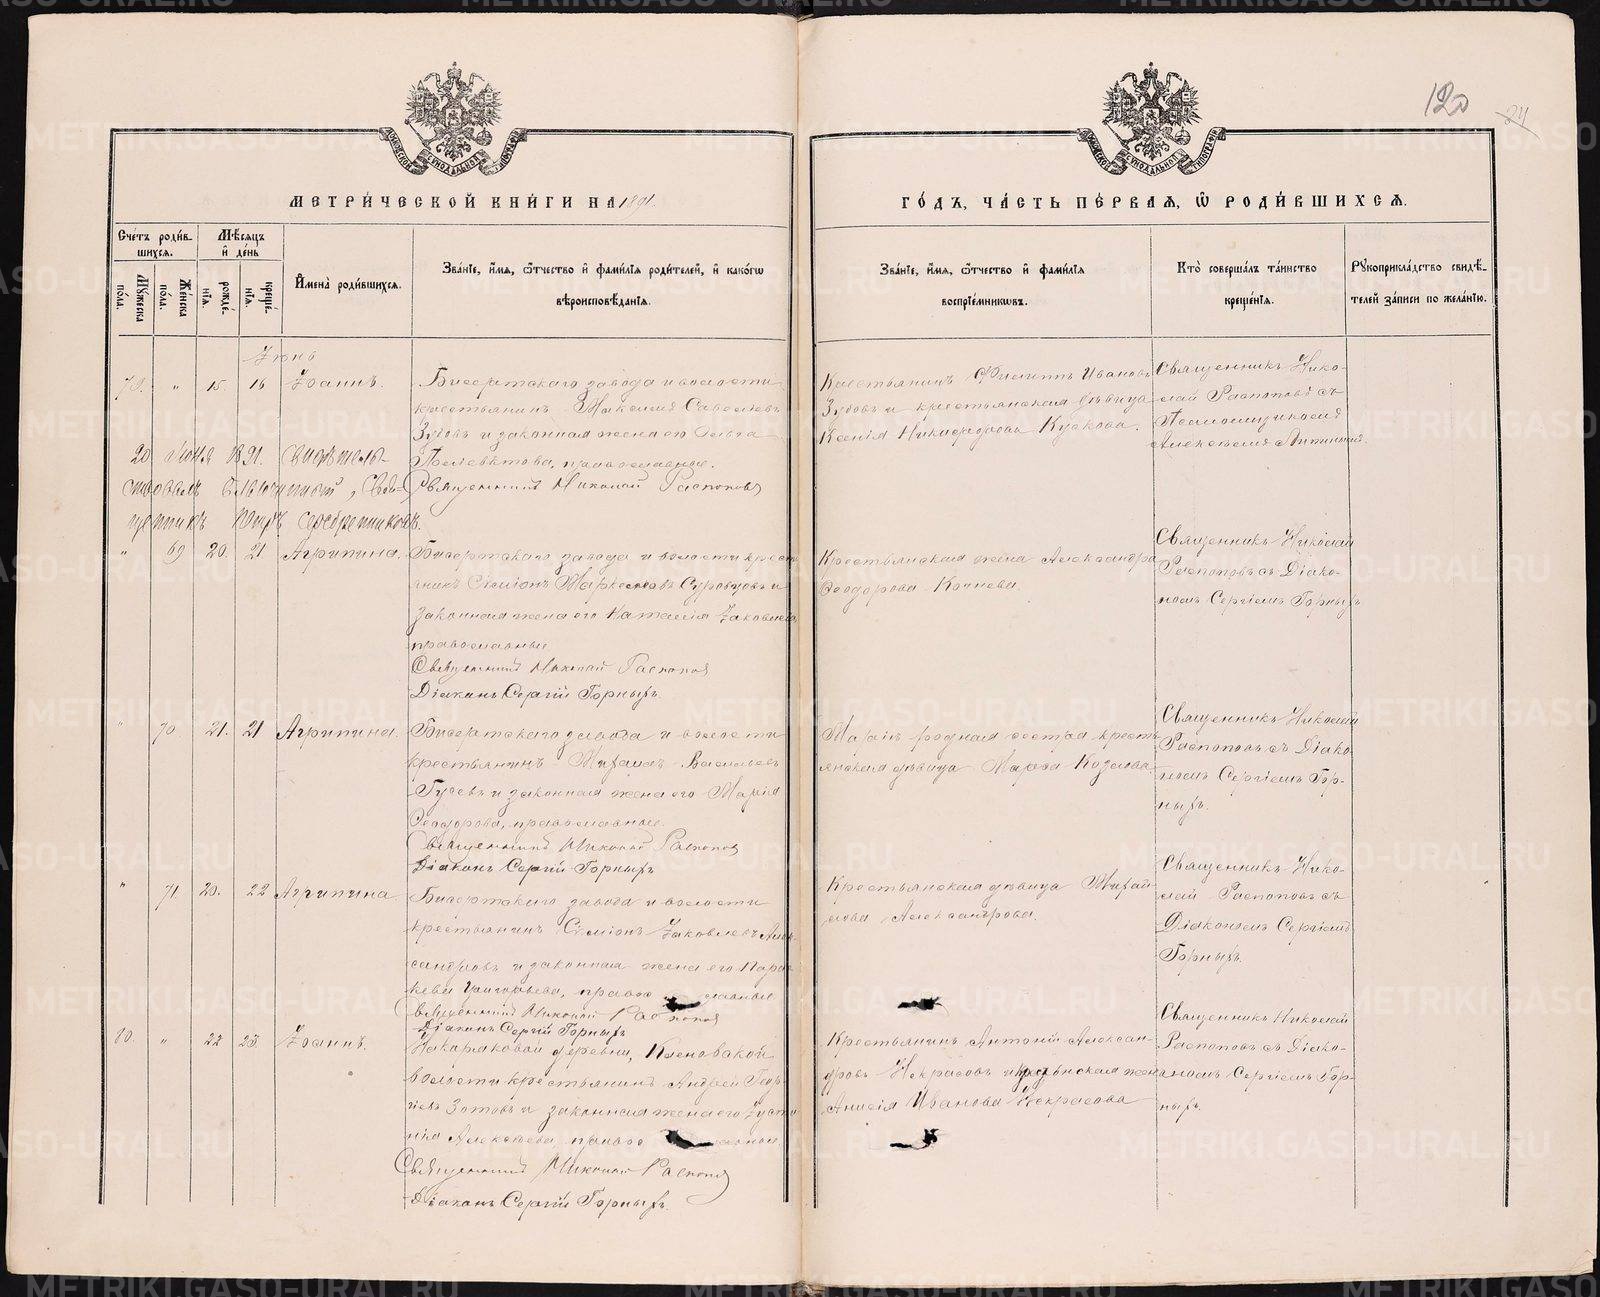 120
24
МЕТРИ́ЧЕСКОЙ КНИ́ГИ НА 1891.
ГО́ДЪ, ЧА́СТЬ ПЕ́РВАЯ, Ѿ РОДИ́ВШИХСЯ.
Сче́тъ роди́в-
шихся.
Мꙋжеска по́ла.
Же́нска по́ла.
Мѣ́сяцъ
и҆ де́нь
рожде́-
нїя.
креще́-
нїя.
И҆мена̀ роди́вшихся.
Зва́нїе, и҆́мя, ѻ҆́тчество и҆ фами́лїя роди́телей, и҆ како́гѡ
вѣроисповѣ́данїя.
Зва́нїе, и҆́мя, ѻ҆́тчество и҆ фами́лїя
воспрїе́мникѡвъ.
Кто̀ соверша́лъ та́инство
креще́нїя.
Рꙋкоприкла́дство свидѣ́-
телей за́писи по жела́нїю.
Іюнь
79. " 15. 16 Іоаннъ.
Бисертскаго завода и волости
крестьянинъ Максимъ Савельевъ
Зубовъ и законная жена его Ольга
православные.
Священникъ Николай Распоповъ
Крестьянинъ Филиппъ Ивановъ
Зубовъ и крестьянская дѣвица
Ксенія Никифорова Кускова.
Священникъ Нико-
лай Распоповъ съ
Псаломщикомъ
20 Іюня 1891. Свидѣтель-
ствовалъ Благочинный, Свя-
щенникъ Петръ Серебренниковъ.
" 69 20. 21. Агрипина.
Бисертскаго завода и волости кресть
янинъ Сімеонъ Суровцовъ и
законная жена его Наталія Іаковлева,
православные
Священникъ Николай Распоповъ
Діаконъ Сергій Горныхъ.
Крестьянская жена Александра
Ѳеодорова Кочнева.
Священникъ Николай
Распоповъ съ Діако-
номъ Сергіемъ Горныхъ
" 70 21. 21 Агрипина.
Бисертскаго завода и волости
крестьянинъ Михаилъ Васильевъ
Гусевъ и законная жена его Марія
Ѳеодорова, православные.
Священникъ Николай Распоповъ
Діаконъ Сергій Горныхъ
родная сестра кресть-
янская дѣвица Марѳа Козлова
Священникъ Николай
Распоповъ съ Діако-
номъ Сергіемъ Гор-
ныхъ.
" 71. 20. 22 Агрипина
Бисертскаго завода и волости
крестьянинъ Сімеонъ Іаковлевъ Алек-
сандровъ и законная жена его Парас
кева Григорьева, православные
Священникъ Николай Распоповъ
Діаконъ Сергій Горныхъ
Крестьянская дѣвица Михай-
лова Александрова.
Священникъ Нико-
лай Распоповъ съ
Діакономъ Сергіемъ
Горныхъ.
80. " 22 23 Іоаннъ.
деревни, Кленовской
волости крестьянинъ Андрей Геор-
гіевъ Зотовъ и законная жена его Іусти
нія Алексѣева православные
Священникъ Николай Распоповъ
Діаконъ Сергій Горныхъ.
Крестьянинъ Антоній Алексан-
дровъ Некрасовъ и крестьянская жена
Анисія Иванова Некрасова
Священникъ Николай
Распоповъ съ Діако-
номъ Сергіемъ Гор-
ныхъ.